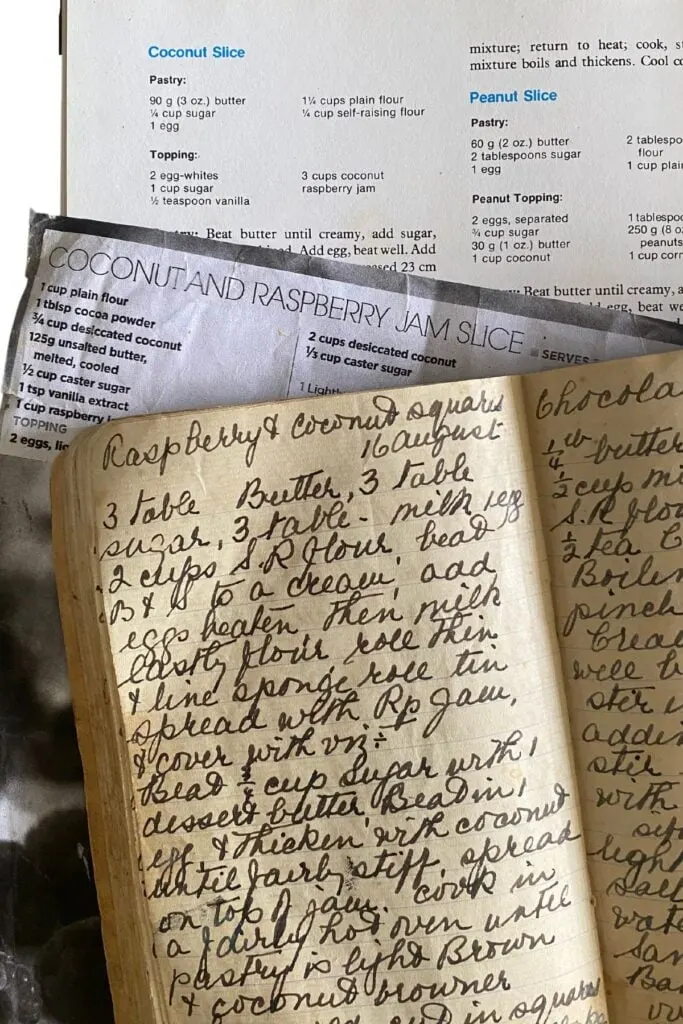 Coconut Slice
Pastry:
90 g (3 oz.) butter
¼ cup sugar
1 egg
1¼ cups plain flour
¼ cup self-raising flour
Topping:
2 egg-whites
1 cup sugar
½ teaspoon vanilla
3 cups coconut
raspberry jam
Beat butter until creamy, add sugar,
Add egg, beat well. Add
23 cm
mixture; return to heat; cook,
mixture boils and thickens. Cool
Peanut Slice
Pastry:
60 g (2 oz.) butter
2 tablespoons sugar
1 egg
flour
1 cup
Peanut Topping:
2 eggs, separated
¾ cup sugar
30 g (1 oz.) butter
1 cup coconut
250 g
peanuts
1 cup
Beat butter until creamy,
egg, beat
COCONUT AND RASPBERRY JAM SLICE
SERVES
1 cup plain flour
1 tblsp cocoa powder
¾ cup desiccated coconut
125g unsalted butter,
melted, cooled
½ cup caster sugar
1 tsp vanilla extract
1 cup raspberry
TOPPING
2 eggs,
2 cups desiccated coconut
⅓ cup caster sugar
1
Raspberry & coconut squares
16 august
3 table Butter, 3 table
sugar, 3 table - milk egg
2 cups S.R flour, bead
B & S to a cream, add
eggs beaten, then milk
lastly flour role thin
& line sponge role tin
spread with Rp Jam,
& cover with
Bead ¾ cup sugar with 1
dessert butter, Bead in 1
egg, & thicken with coconut
until fairly stiff, spread
on top of jam. cook in
a fairly hot oven until
pastry is light Brown
& coconut browner
cut in squares
¼ lb butter
½ cup
S.R
½ tea
pinch
well
stir
stir
with